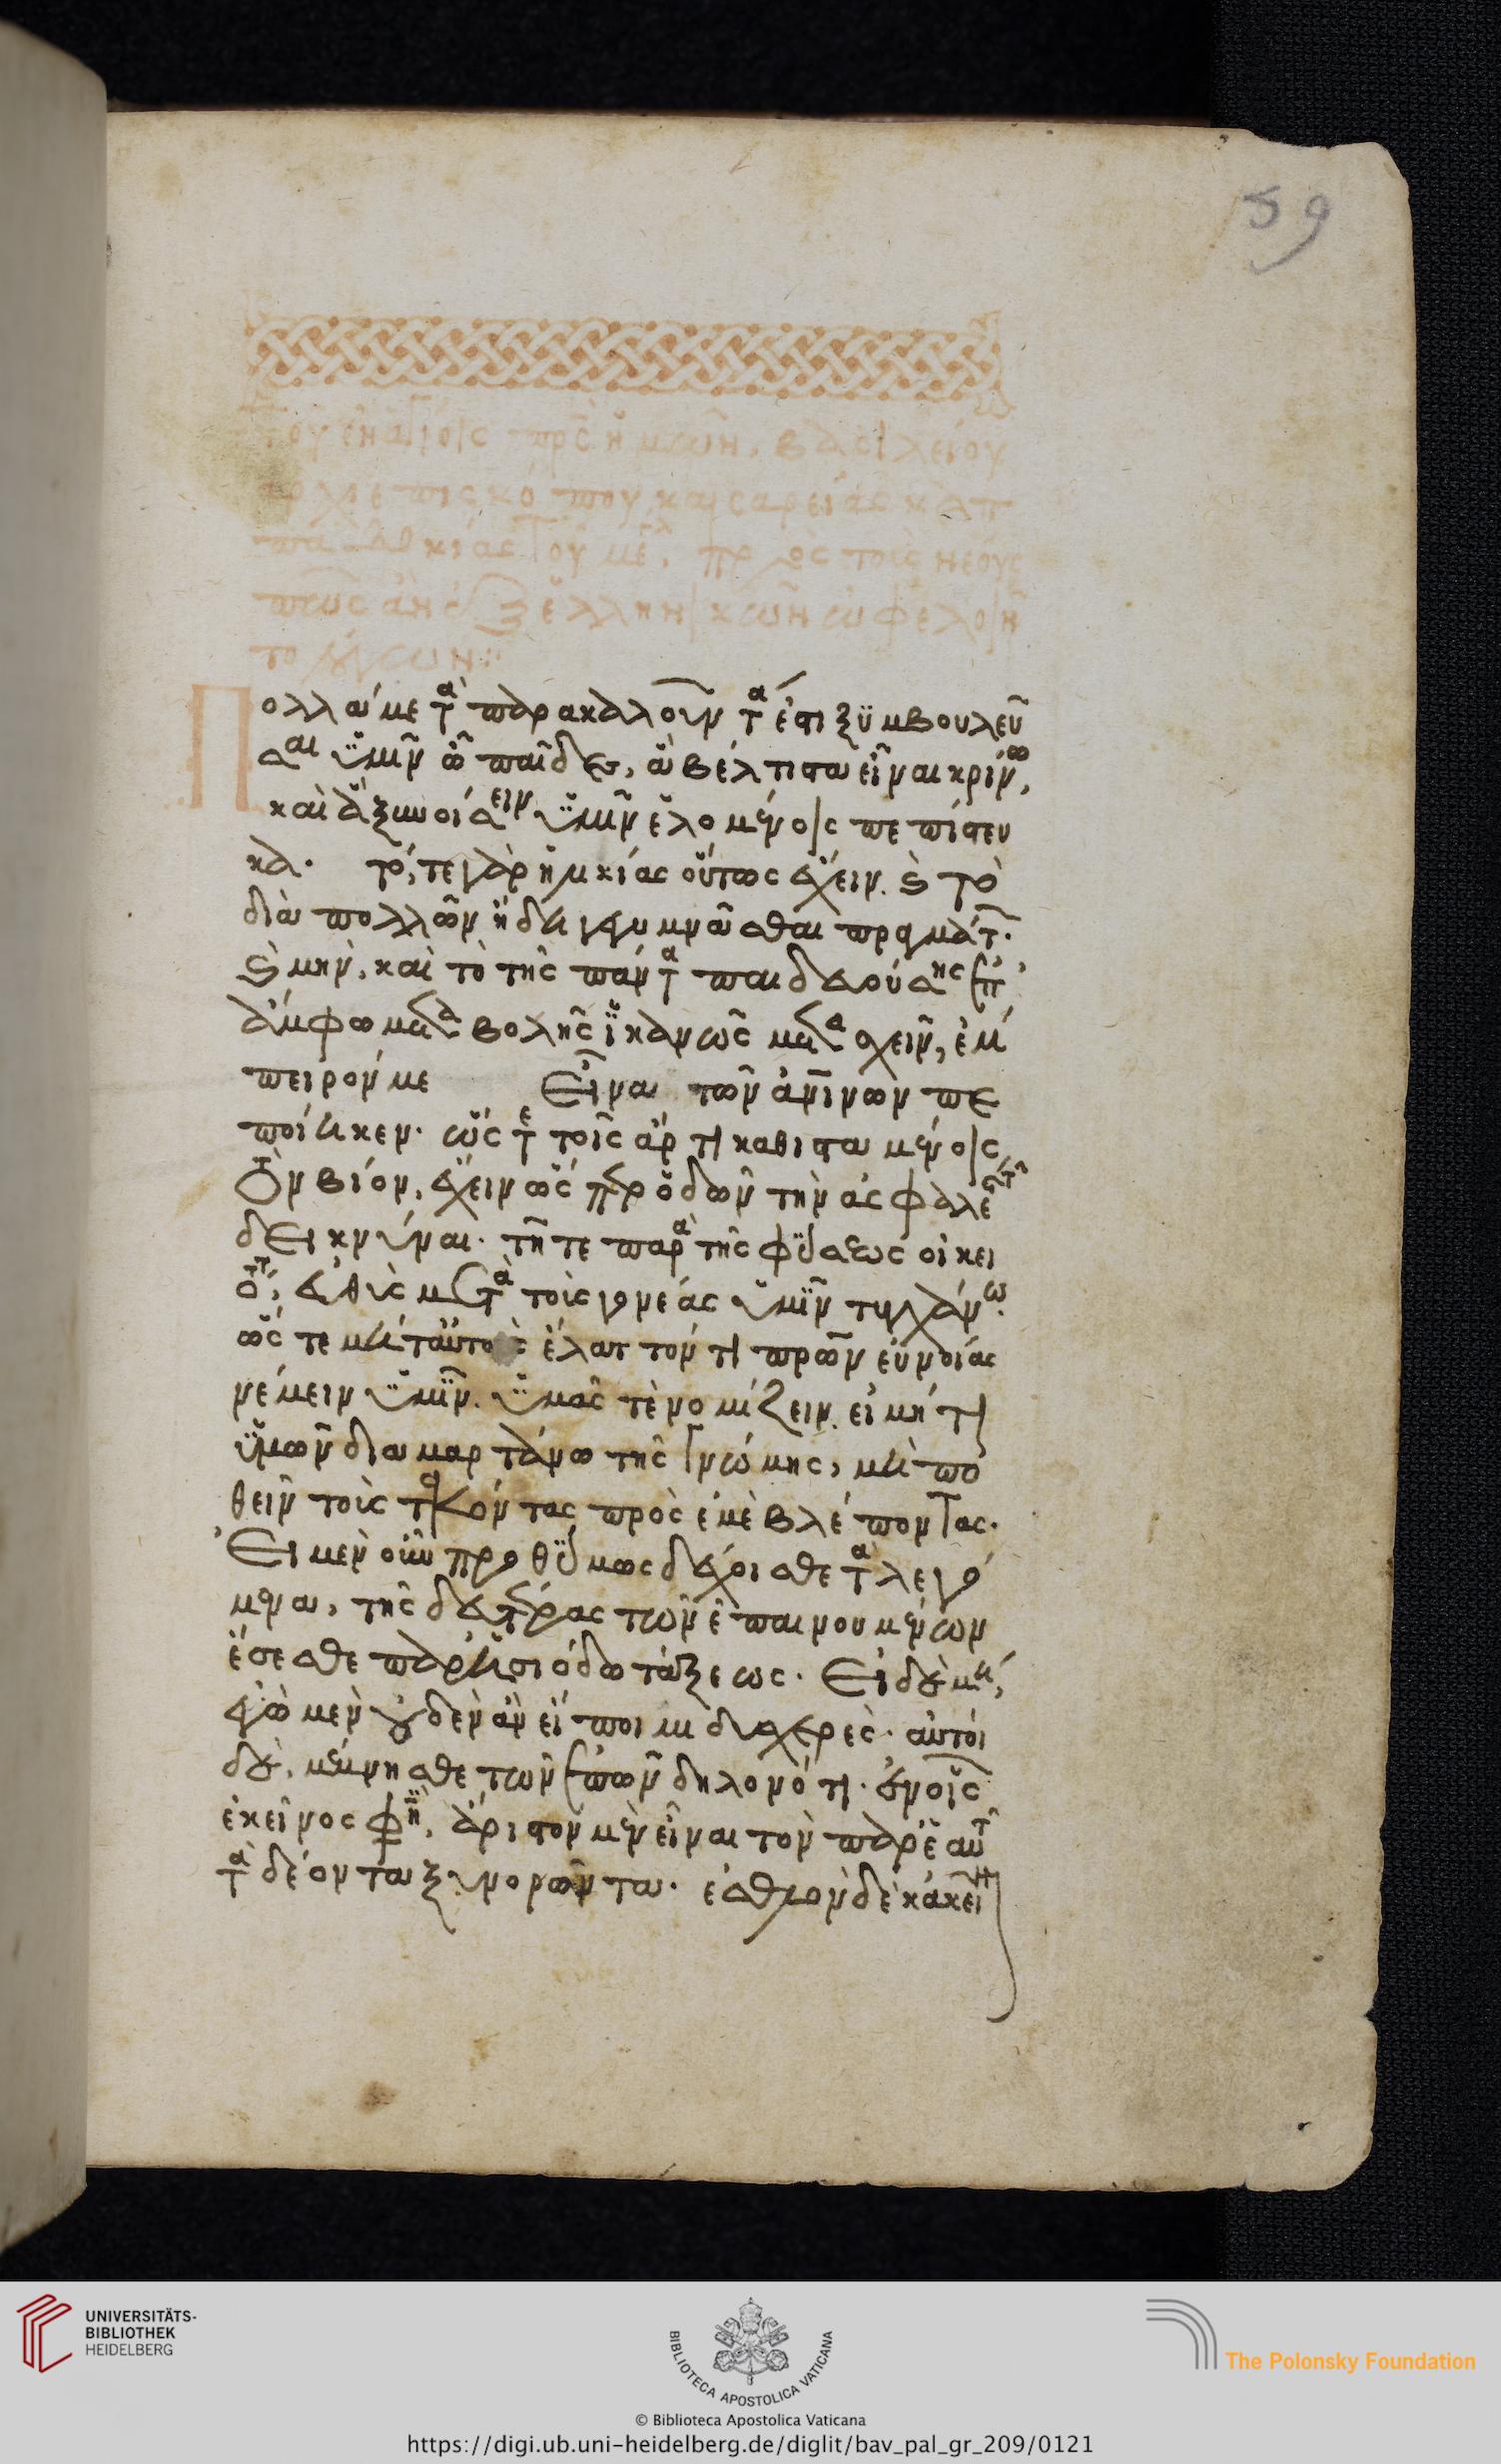 59
τοῦ ἐν ἁγίοις πρς ἡμῶν, βασιλείου
ἀρχιεπισκόπου καισαρείας καπ
παδοκίας τοῦ μεγ. πρὸς τοὺς νέους
πῶς ἂν ἐξ ἑλληνικῶν ὠφελοῖν
το λόγων:
Πολλά με τὰ παρακαλοῦντά ἐστι ξυμβουλεῦ
σαι ὑμῖν ὦ παῖδες, ἃ βέλτιστα εἶναι κρίνω,
καὶ ἃ ξυνοίσειν ὑμῖν ἑλομένοις πεπίστευ
κα. τό, τε γὰρ ἡλικίας οὕτως ἔχειν. καὶ τὸ
διὰ πολλῶν ἤδη γεγυμνᾶσθαι πραγμάτ.
καὶ μὴν, καὶ τὸ τῆς πάντα παιδευούσης ἐπ'
ἄμφω μεταβολῆς ἱκανῶς μετασχεῖν, ἔμ
πειρόν με εἶναι τῶν ἀνινων πε
ποίηκεν. ὥς τε τοῖς ἄρτι καθισταμένοις
τὸν βίον, ἔχειν ὥσπερ ὁδῶν τὴν ἀσφαλεστ
δεικνύναι. τῇ τε παρὰ τῆς φύσεως οἰκει
ότητι, εὐθὺς μετὰ τοὺς γονέας ὑμῖν τυγχάνω.
ὥς τε μήτ αὐτὸς ἔλαττόν τι πρων εὐνοίας
νέμειν ὑμῖν. ὑμᾶς τὲ νομίζειν. εἰ μή τι
ὑμῶν διαμαρτάνω τῆς γνώμης, μὴ πο
θεῖν τοὺς τεκόντας πρὸς ἐμὲ βλέποντας.
Εἰ μὲν οὖν προθύμως δέχοισθε τὰ λεγό
μενα, τῆς δευτέρας τῶν ἐπαινουμένων
ἔσεσθε παρ' ησιόδω τάξεως. Εἰ δὲ μή,
ἐγὼ μὲν οὐδὲν ἂν εἴποιμι δυσχερὲς. αὐτοὶ
δὲ, μέμνησθε τῶν ἐπῶν δηλονότι. ἐν οἷς
ἐκεῖνος φησὶν, ἄριστον μὲν εἶναι τὸν παρ' ἑαυτ
τὰ δέοντα ξυνορῶντα. ἐσθλὸν δὲ κἀκεῖν
UNIVERSITÄTS-
BIBLIOTHEK
HEIDELBERG
BIBLIOTECA APOSTOLICA VATICANA
The Polonsky Foundation
© Biblioteca Apostolica Vaticana
https://digi.ub.uni-heidelberg.de/diglit/bav_pal_gr_209/0121